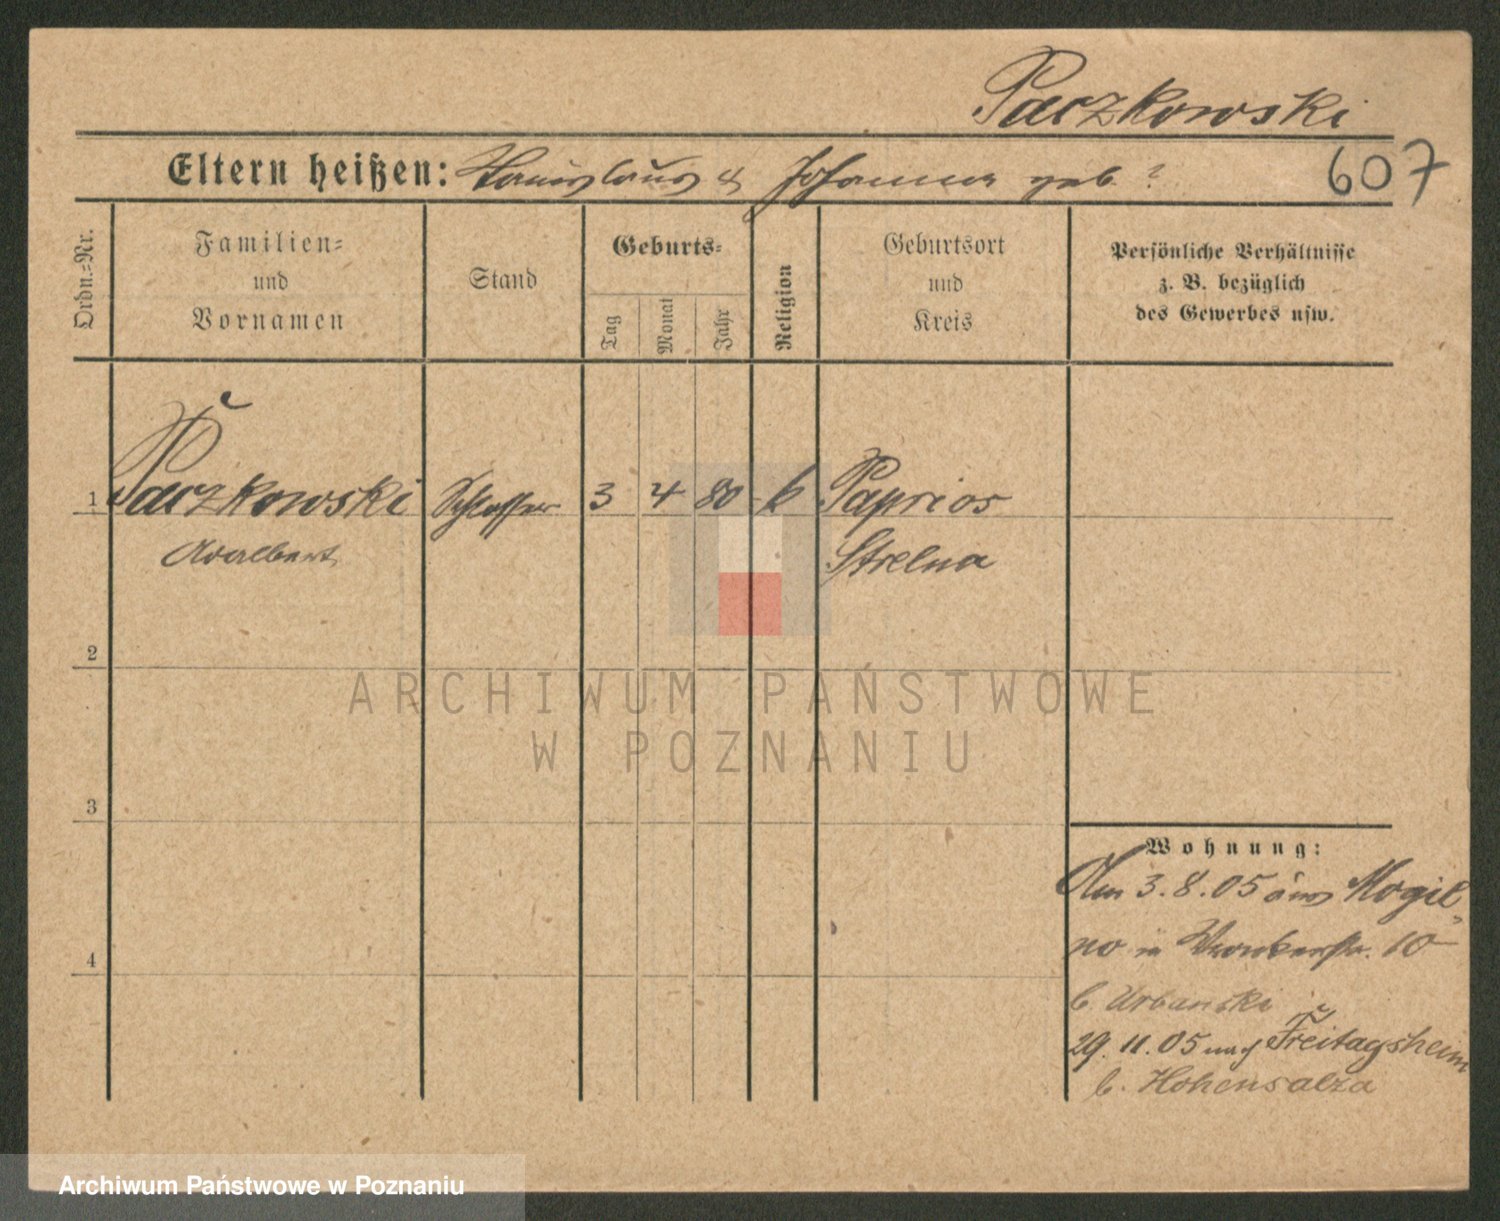 Paczkowski
Eltern heißen: Stanislaus & Johanna geb. ?
607
Ordn.=Nr.
Familien=
und
Vornamen
Stand
Geburts=
Tag
Monat
Jahr
Religion
Geburtsort
und
Kreis
Persönliche Verhältnisse
z. B. bezüglich
des Gewerbes usw.
1 Paczkowski Schlosser 3 4 80 k Papros
Adalbert Strelna
2
3
4
Wohnung:
Am 3.8.05 aus Mogil=
no in Wronkerstr. 10
b. Urbanski
29.11.05 nach Freitagsheim
b. Hohensalza
ARCHIWUM PAŃSTWOWE
W POZNANIU
Archiwum Państwowe w Poznaniu